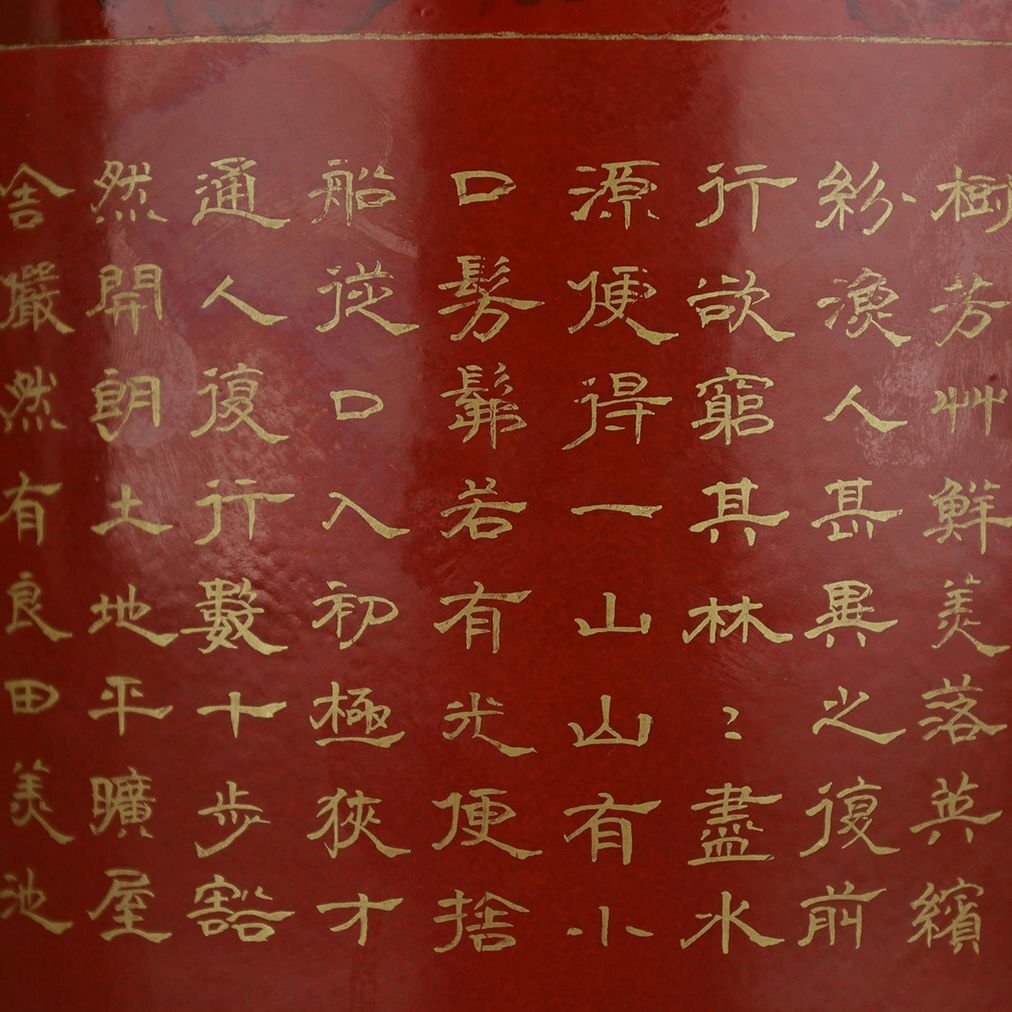 樹芳艸鮮美落英繽
紛漁人甚異之復前
行欲窮其林〻盡水
源便得一山山有小
口髣髴若有光便捨
船從口入初極狹才
通人復行數十步豁
然開朗土地平曠屋
舍嚴然有良田美池